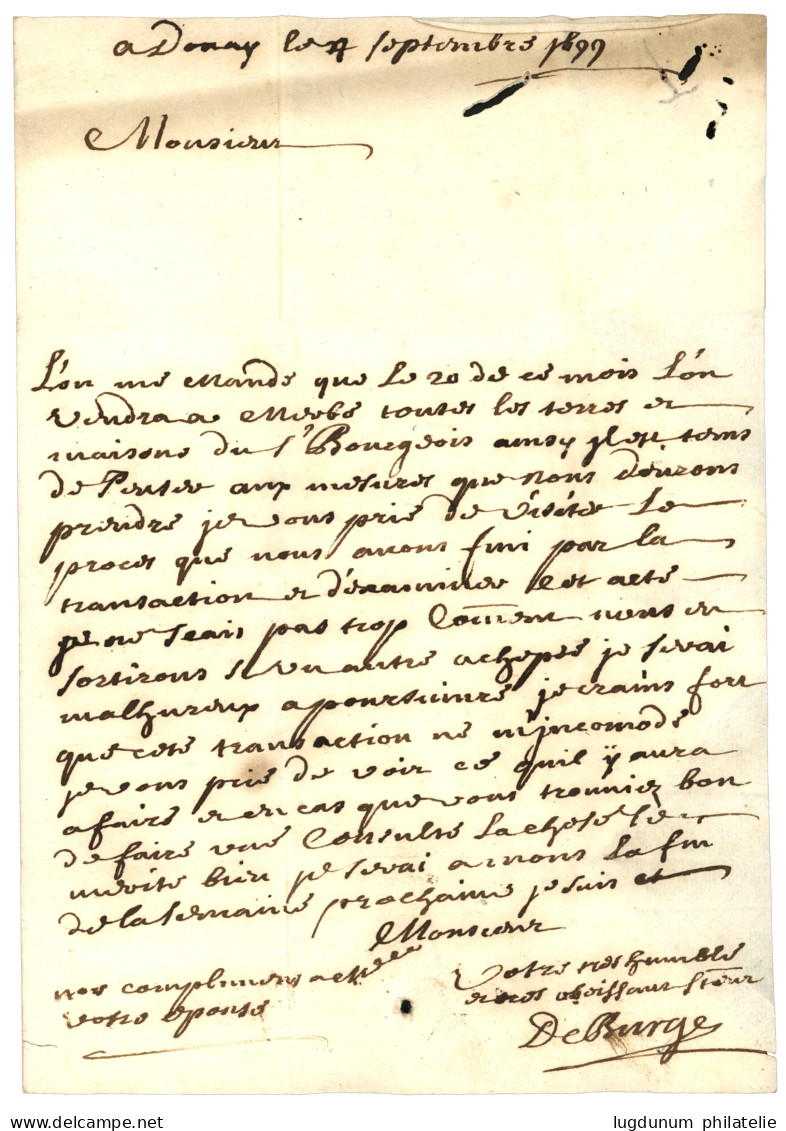 a Douay le 4 septembre 1699
Monsieur
L'on me mande que le 20 de ce mois l'on
vendra a Meebe toutes les terres et
maisons du Sr Bourgeois ainsy il est tems
de penser aux mesures que nous deurons
prendre je vous prie de visiter le
proces que nous auons fini par la
transaction et d'examiner cet acte
je ne scais pas trop Comment nous en
sortirons si un autre achepte je serai
malhureux a poursuiure je crains fort
que cete transaction ne m'jncomode
je vous prie de voir ce quil y aura
a faire et en cas que vous trouuiez bon
de faire une Consulte la chose le
merite bien je serai a mons la fin
de la semaine prochaine je suis et
Monsieur
nos complimens a
votre epouse
Votre tres humble
et tres obeissant
De Burge
lugdunum philatelie